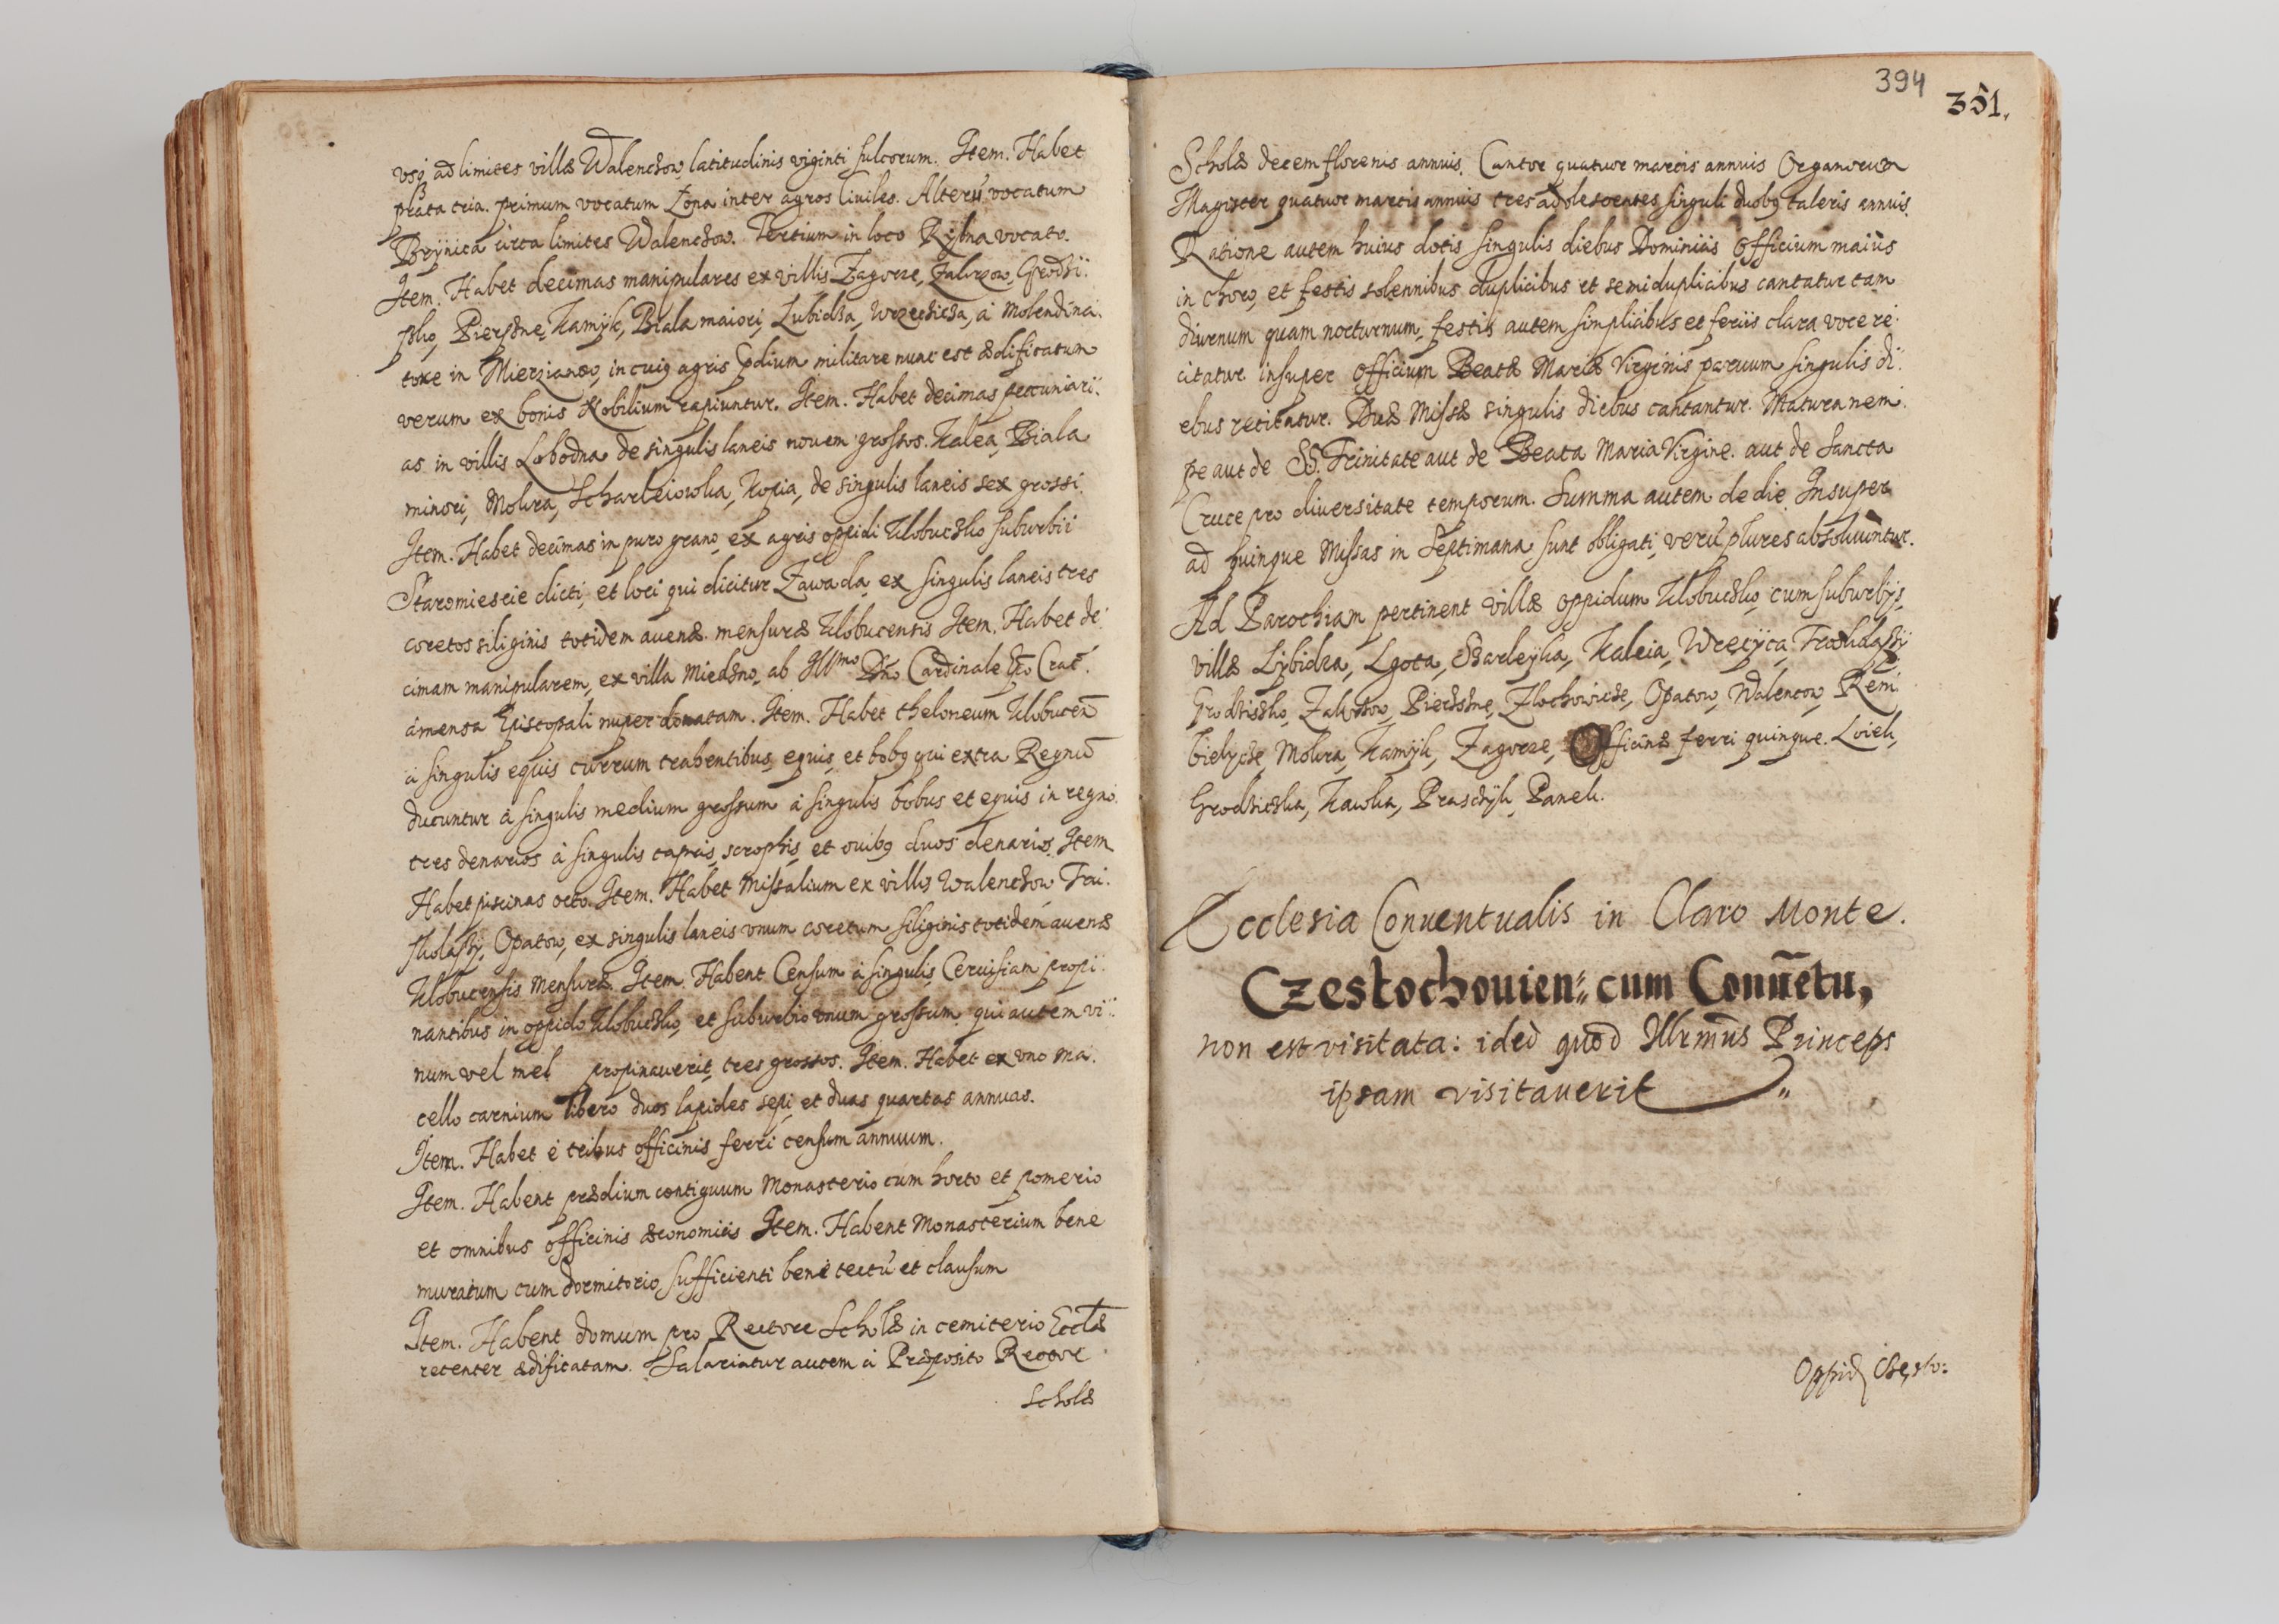 usq3 ad limites villæ Walenchow latitudinis viginti sulcorum. Item. Habet
prata tria. primum vocatum Zona inter agros Ciuiles. Alterũ vocatum
Brÿnica circa limites Walenchow. Tertium in loco Rÿbna vocato.
Item. Habet decimas manipulares ex villis Zagorze, Zakrzow, Grodzi:
sko, Pierzchne, Kamÿk, Biala maiori, Lubidza, Wrzeczicza, à Molendina:
tore in Mierzianow, in cuiq agris p̃dium militare nunc est ædificatum
verum ex bonis Nobilium rapiuntur. Item. Habet decimas pecuniari:
as in villis Lobodna de singulis laneis nouem grossos. Kalea, Biala
minori, Mokra, Scharleiowka, Kopia, de singulis laneis sex grossi.
Item. Habet decimas in puro grano, ex agris oppidi Klobuczko suburbii
Staromiescie dicti, et loci qui dicitur Zawada, ex singulis laneis tres
coretos siliginis totidem auenæ mensuræ Klobucensis Item. Habet de:
cimam manipularem, ex villa Miedzno, ab Illmo Dño Cardinale Ep̃o Crac̃.
à mensa Episcopali nuper donatam. Item. Habet theloneum Klobucen̄
à singulis equis currum trahentibus, equis, et bobq qui extra Regnũ
ducuntur à singulis medium grossum à singulis bobus et equis in regno
tres denarios à singulis capris, scrophis, et ouibq duos denarios. Item
Habet piscinas octo. Item. Habet Missalium ex villis Walenchow Tru:
skolassÿ, Opatow, ex singulis laneis vnum coretum siliginis totidem auenæ
Klobucensis mensuræ. Item. Habent Censum à singulis Ceruisiam propi:
nantibus in oppido Klobuczko, et suburbio vnum grossum, qui autem vi:
num vel mel propinauerit, tres grossos. Item. Habet ex vno ma:
cello carnium libero duos lapides sepi et duas quartas annuas.
Item. Habet è tribus officinis ferri censum annuum.
Item. Habent prædium contiguum Monasterio cum horto et pomerio
et omnibus officinis œconomicis Item. Habent Monasterium bene
muratum cum dormitorio sufficienti bene tectũ et clausum
Item. Habent domum pro Rectore Scholæ in cemiterio Eccl̃æ
recenter ædificatam. Salariatur autem à Præposito Rector
Scholæ
394
351.
Scholæ decem florenis annuis. Cantor quatuor marcis annuis Organorum
Magister quatuor marcis annuis tres adolescentes singuli duobq taleris annuis.
Ratione autem huius dotis singulis diebus Dominicis Officium maius
in choro, et festis solennibus duplicibus et semiduplicibus cantatur tam
diurnum quam nocturnum, festis autem simplicibus et feriis clara voce re:
citatur insuper Officium Beatæ Mariæ Virginis paruum singulis di:
ebus recitatur. Duæ Missæ singulis diebus cantantur. Matura nem:
pe aut de SS. Trinitate aut de Beata Maria Virgine. aut de Sancta
Cruce pro diuersitate temporum. Summa autem de die. Insuper
ad quinque Missas in Septimana sunt obligati, verũ plures absoluuntur.
Ad Parochiam pertinent villæ oppidum Klobuczko, cum suburbÿs,
villæ Lÿbidza, Lgota, Szarleÿka, Kaleia, Wręcÿca, Troskolassÿ
Grodzisko, Zakrzow, Pierzchne, Zlochowicze, Opatow, Walencow, Rem:
bielycze, Mokra, Kamÿk, Zagorze, Officinæ ferri quinque. Lviek,
Grodziczka, Kawka, Praschÿk, Panek.
Ecclesia Conuentualis in Claro Monte.
Czestochouien: cum Conuẽtu,
non est visitata: ideò quod Illrmus Princeps
ipsam visitauerit
Oppid. Czesto: